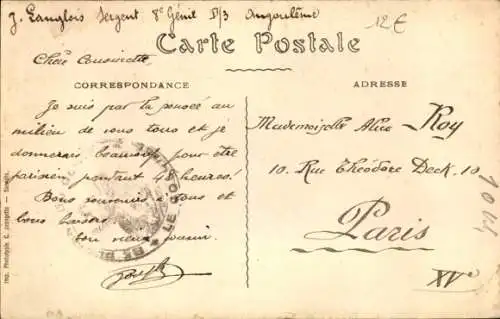 J. Langlois Sergent 8e Génie D/3 Angoulême
12€
Carte Postale
Chère Cousinette
CORRESPONDANCE
ADRESSE
Je suis par la pensée au
milieu de vous tous et je
donnerais beaucoup pour être
parisien pendant 48 heures!
Bons souvenirs à tous et
bons baisers
ton vieux cousin.
Mademoiselle Alice Roy
10. Rue Théodore Deck. 10
Paris
XVe